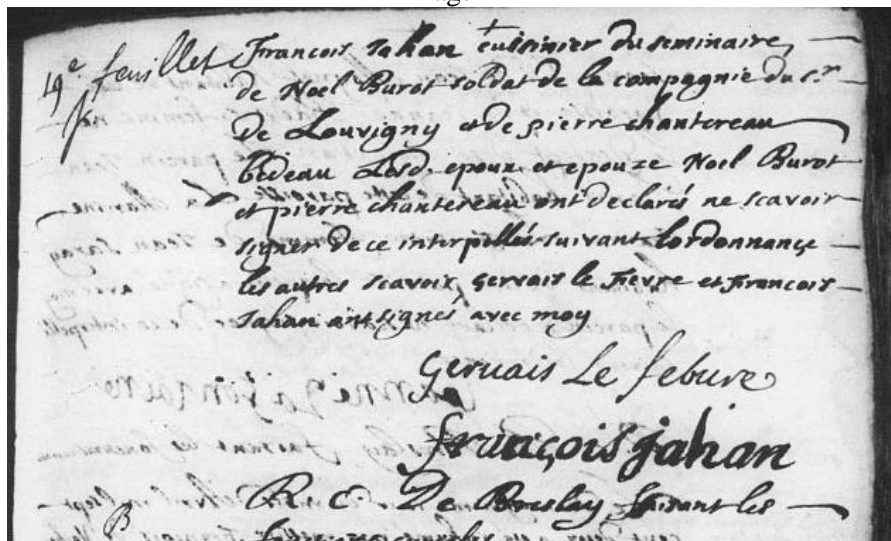 19e feuillet
François Jahan cuisinier du seminaire,
de Noel Burot soldat de la compagnie du sr
de Louvigny et de pierre chantereau
bedeau Lesd. epoux et epouze Noel Burot
et pierre chantereau ont declarés ne scavoir
signer de ce interpellés suivant lordonnance
les autres scavoir gervais le fievre et françois
Jahan ont signés avec moy
Gervais Le febure
françois jahan
R. C. De Breslay faisant les
B